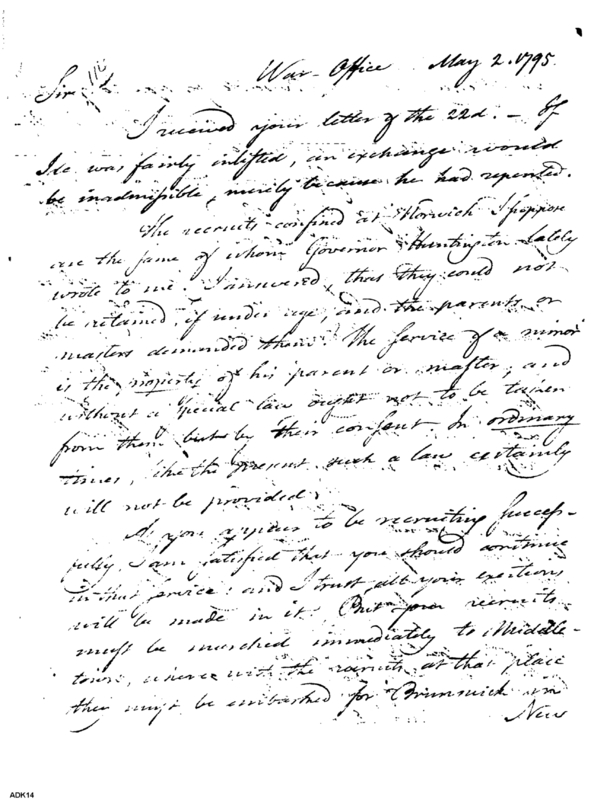 War-Office May 2. 1795.
Sir
I received your letter of the 22d. — If
was fairly inlisted, an exchange would
be inadmissible, merely because he had repented.
The recruits confined at Norwich I suppose
are the same of whom Governor Huntington lately
wrote to me. I answered, that they could not
be retained, if under age, and the parents or
masters demanded them. The service of a minor
is the property of his parent or master, and
without a special law ought not to be taken
from them but by their consent. In ordinary
times, like the present, such a law certainly
will not be provided.
As you appear to be recruiting success-
fully, I am satisfied that you should continue
in that service: and I trust all your exertions
will be made in it. But your recruits
must be marched immediately to Middle-
town, whence with the recruits at that place
they must be embarked for Brunswick in
New
ADK14